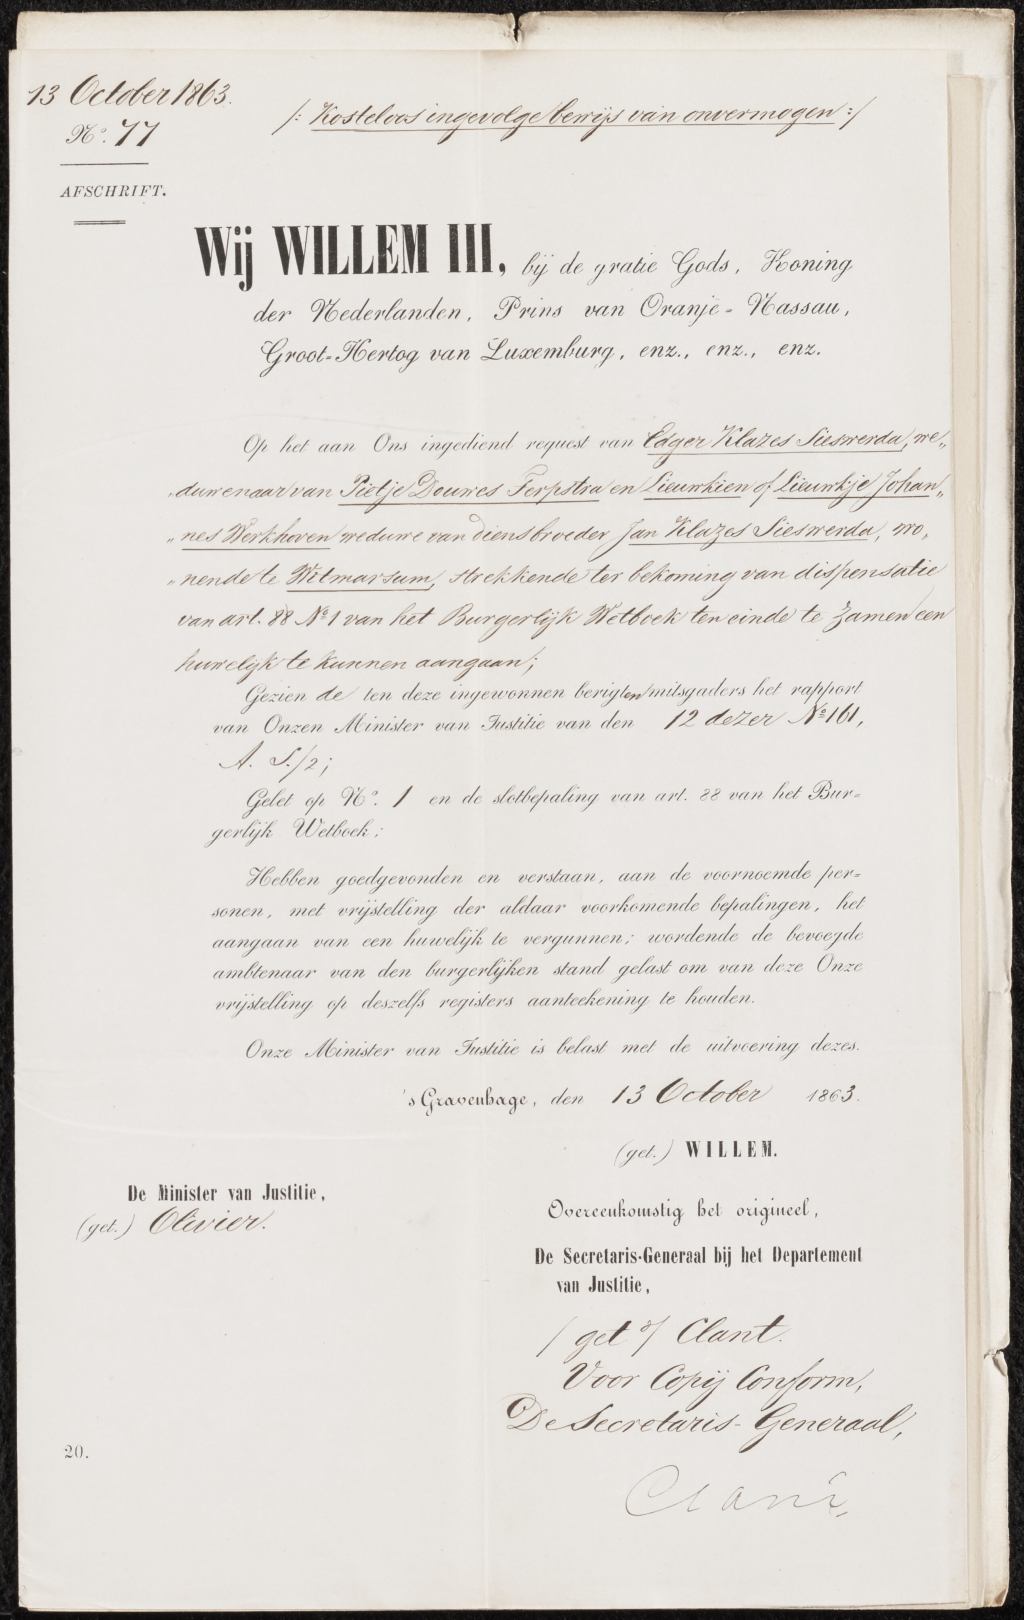 13 October 1863.
/: Kosteloos ingevolge bewijs van onvermogen :/
No. 77
AFSCHRIFT.
Wij WILLEM III, bij de gratie Gods, Koning
der Nederlanden, Prins van Oranje-Nassau,
Groot-Hertog van Luxemburg, enz., enz., enz.
Op het aan Ons ingediend request van Edger Klazes Sieswerda, we„
„duwenaar van Pietje Douwes Terpstra en Lieuwkien of Lieuwkje Johan„
„nes Werkhoven weduwe van diens broeder Jan Klazes Sieswerda, wo„
„nende te Witmarsum, strekkende ter bekoming van dispensatie
van art. 88 No 1 van het Burgerlijk Wetboek ten einde te zamen een
huwelijk te kunnen aangaan;
Gezien de ten deze ingewonnen berigten mitsgaders het rapport
van Onzen Minister van Justitie van den 12 dezer No 161,
A. S./2;
Gelet op No. 1 en de slotbepaling van art. 88 van het Bur=
gerlijk Wetboek;
Hebben goedgevonden en verstaan, aan de voornoemde per=
sonen, met vrijstelling der aldaar voorkomende bepalingen, het
aangaan van een huwelijk te vergunnen; wordende de bevoegde
ambtenaar van den burgerlijken stand gelast om van deze Onze
vrijstelling op deszelfs registers aanteekening te houden.
Onze Minister van Justitie is belast met de uitvoering dezes.
's Gravenhage, den 13 October 1863.
(get.) WILLEM.
De Minister van Justitie,
(get.) Olivier.
Overeenkomstig het origineel,
De Secretaris-Generaal bij het Departement
van Justitie,
/ get o/ Clant.
Voor Copij Conform,
De Secretaris-Generaal,
Clant,
20.